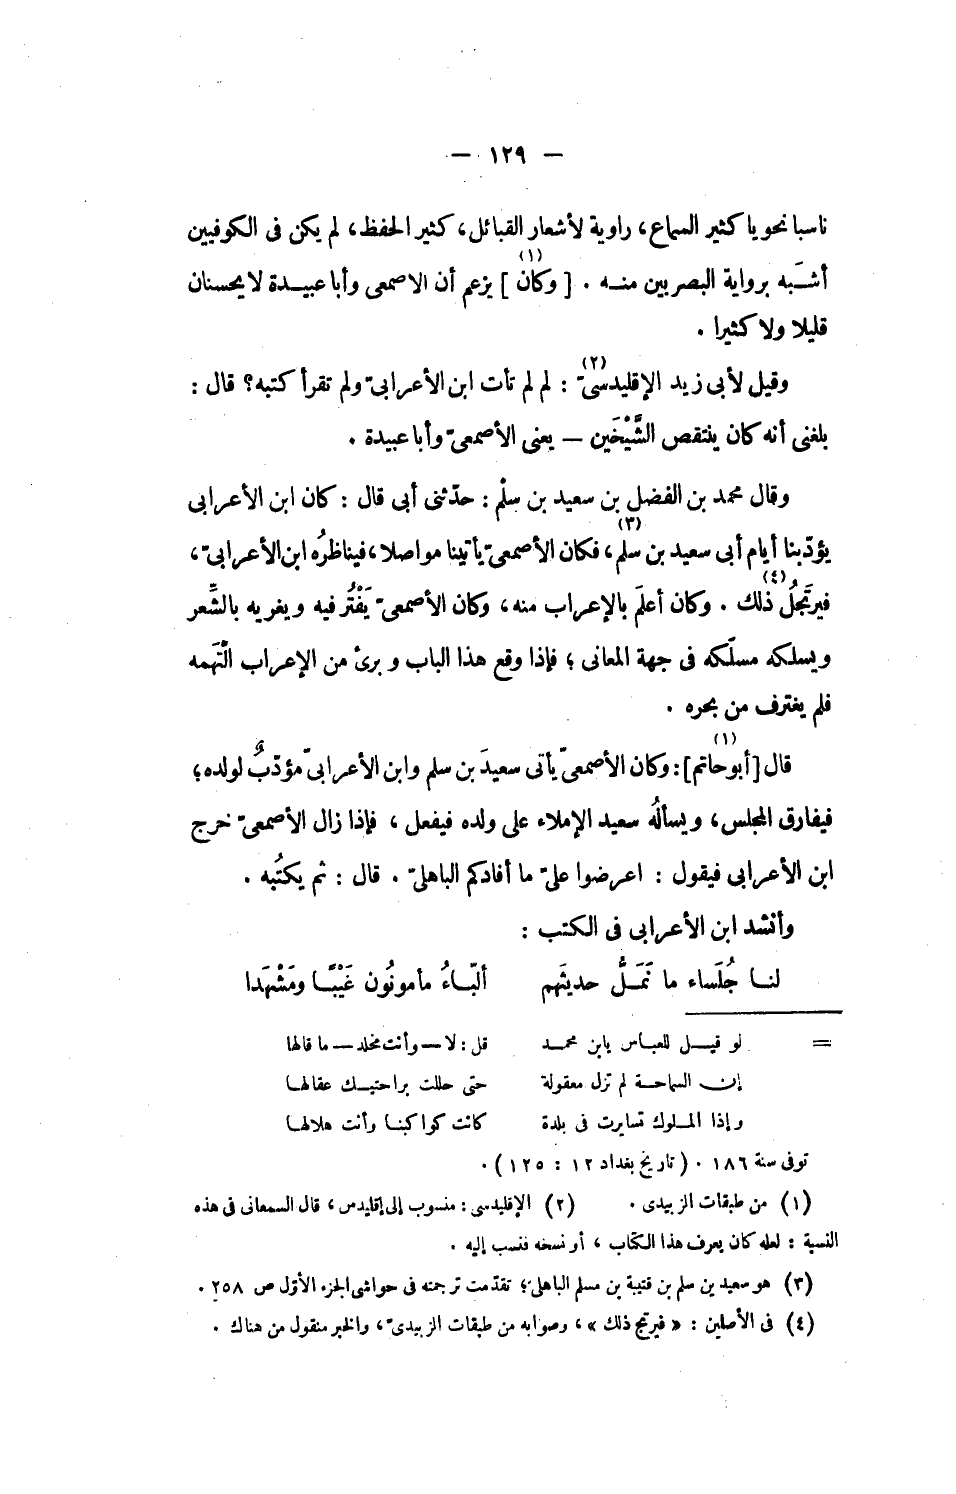 — ١٢٩ —
ناسبا نحويا كثير السماع، راوية لأشعار القبائل، كثير الحفظ، لم يكن فى الكوفيين
أشبَه برواية البصريين منه . [ وكان (١) ] يزعم أن الاصمعى وأبا عبيدة لا يحسنان
قليلا ولا كثيرا .
وقيل لأبى زيد الإقليدسىّ (٢) : لم لم تأت ابن الأعرابىّ ولم تقرأ كتبه؟ قال :
بلغنى أنه كان ينتقص الشَّيْخَين — يعنى الأصمعىّ وأبا عبيدة .
وقال محمد بن الفضل بن سعيد بن سلْم : حدّثنى أبى قال : كان ابن الأعرابى
يؤدّبنا أيام أبى سعيد بن سلم (٣)، فكان الأصمعىّ يأتينا مواصلا، فيناظرُه ابن الأعرابىّ،
فيرتجلُ (٤) ذلك . وكان أعلَم بالإعراب منه، وكان الأصمعىّ يَفْتُر فيه ويغريه بالشِّعر
ويسلكه مسلَكه فى جهة المعانى ؛ فإذا وقع هذا الباب وبرئ من الإعراب الْتَهَمه
فلم يغترف من بحره .
قال [أبو حاتم (١)] : وكان الأصمعىّ يأتى سعيدَ بن سلم وابن الأعرابىّ مؤدّبٌ لولده؛
فيفارق المجلس، ويسألُه سعيد الإملاء على ولده فيفعل ، فإذا زال الأصمعىّ خرج
ابن الأعرابى فيقول : اعرضوا علىّ ما أفادكم الباهلىّ . قال : ثم يكتُبه .
وأنشد ابن الأعرابى فى الكتب :
لنا جُلَساء ما نَمَلُّ حديثَهم ألبّاءُ مأمونُون غَيْبًا ومَشْهَدا
= لو قيل للعباس يابن محمد قل : لا — وأنت مخلد — ما قالها
إن السماحة لم تزل معقولة حتى حللت براحتيك عقالها
وإذا الملوك تسايرت فى بلدة كانت كواكبها وأنت هلالها
توفى سنة ١٨٦ . ( تاريخ بغداد ١٢ : ١٢٥ ) .
(١) من طبقات الزبيدى . (٢) الإقليدسى : منسوب إلى إقليدس ، قال السمعانى فى هذه
النسبة : لعله كان يعرف هذا الكتاب ، أو نسخه فنسب إليه .
(٣) هو سعيد بن سلم بن قتيبة بن مسلم الباهلى؛ تقدّمت ترجمته فى حواشى الجزء الأوّل ص ٢٥٨ .
(٤) فى الأصلين : « فيرتج ذلك » ، وصوابه من طبقات الزبيدىّ ، والخبر منقول من هناك .